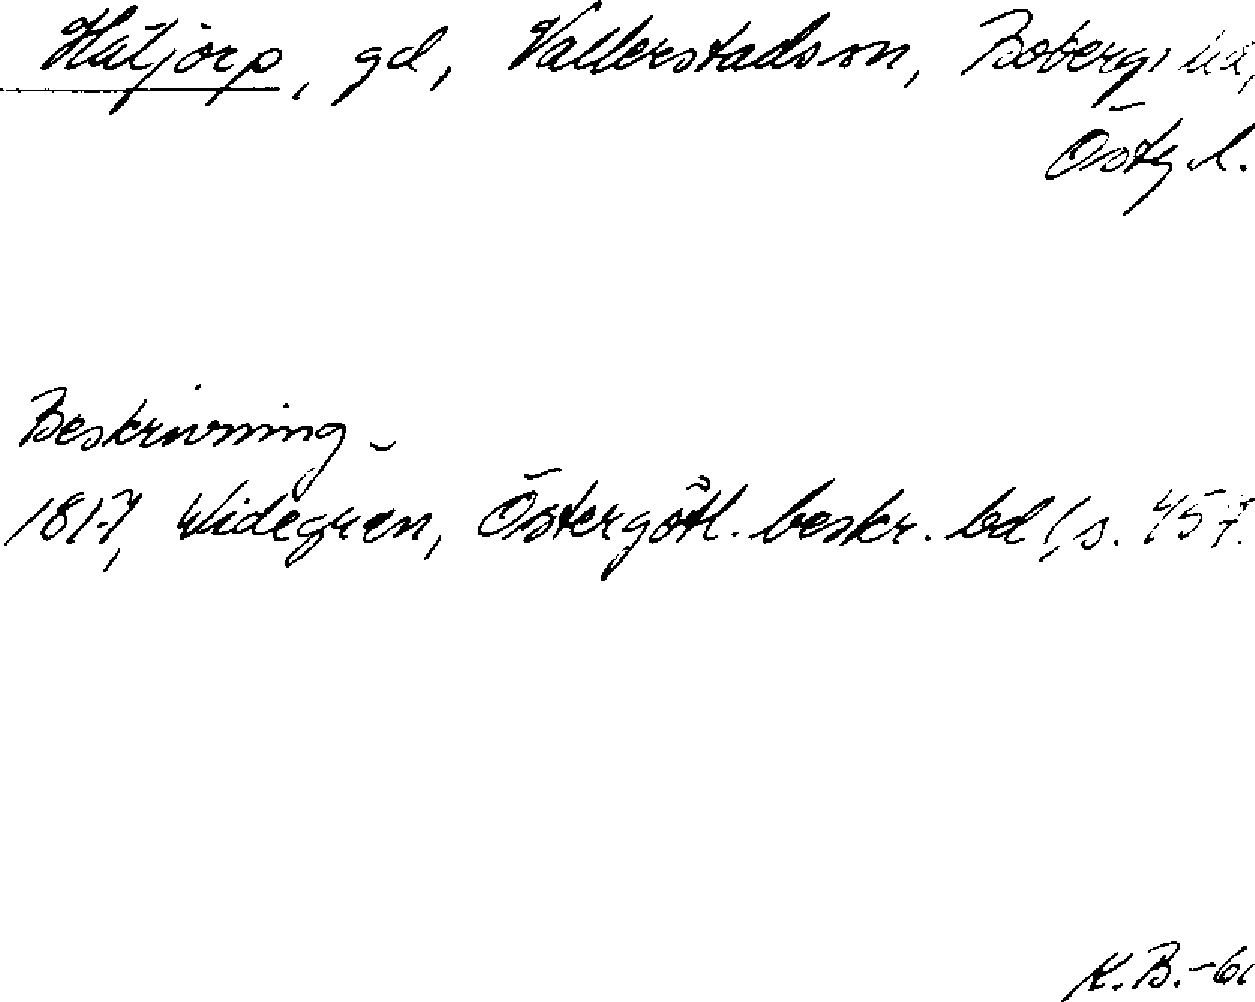 Hätjorp, gd, Vallerstads sn, Bobergs hd,
Östg. l.
Beskrivning -
1817, Widegren, Östergötl. beskr. bd 1, s. 457.
K.B. -